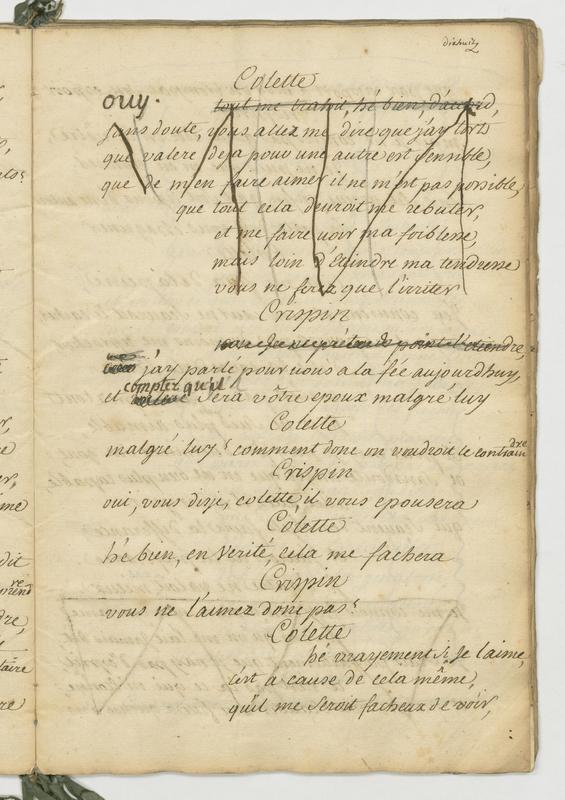 dixhuit
Colette
ouy.
tout me trahit, hé bien, d'acord,
sans doute, vous allez me dire que j'ay tort
que valere deja pour une autre est sensible,
que de m'en faire aimer il ne m'est pas possible,
que tout cela devroit me rebuter,
et me faire voir ma foiblesse,
mais loin d'eteindre ma tendresse
vous ne ferez que l'irriter
Crispin
je ne pretends point l'eteindre,
j'ay parlé pour vous a la fée aujourdhuy,
compter qu'il
et sera vôtre epoux malgré luy
Colette
malgré luy? comment donc on voudroit le contraindre
Crispin
oui, vous disje, colette, il vous epousera
Colette
hé bien, en verité, cela me fachera
Crispin
vous ne l'aimez donc pas?
Colette
hé vrayement si je l'aime,
c'est a cause de cela même,
qu'il me seroit facheux de voir,